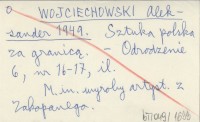 WOJCIECHOWSKI Alek-
sander 1949. Sztuka polska
za granicą. – Odrodzenie
6, nr 16-17, il.
M.in. wyroby artyst. z
Zakopanego.